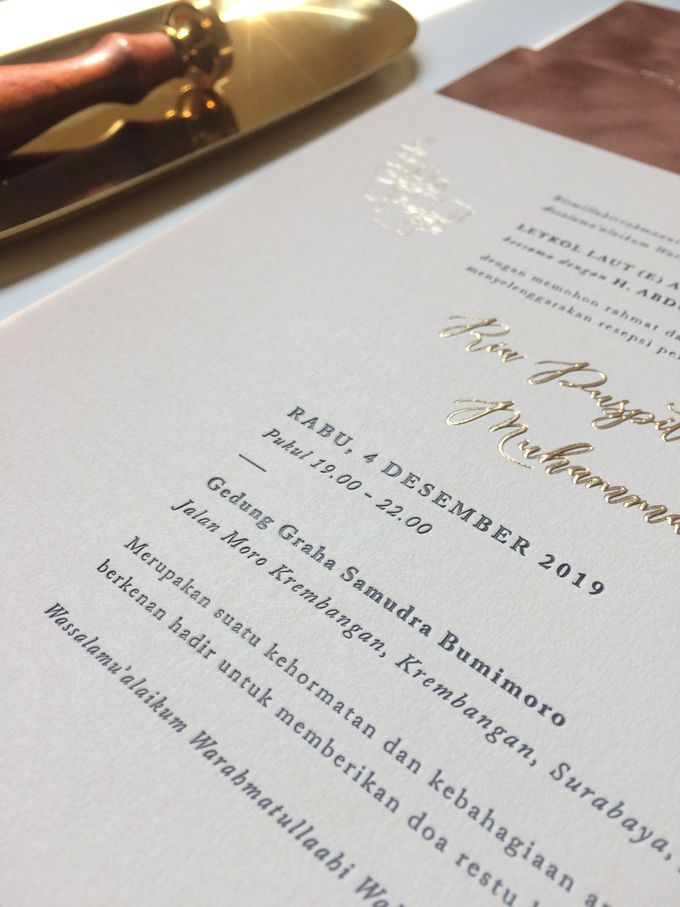 LETKOL LAUT (E) A
bersama dengan H. ABD
dengan memohon rahmat da
menyelenggarakan resepsi pe
Ria Puspit
Muhamma
RABU, 4 DESEMBER 2019
Pukul 19.00 - 22.00
Gedung Graha Samudra Bumimoro
Jalan Moro Krembangan, Krembangan, Surabaya,
Merupakan suatu kehormatan dan kebahagiaan ap
berkenan hadir untuk memberikan doa restu
Wassalamu'alaikum Warahmatullaahi Wa